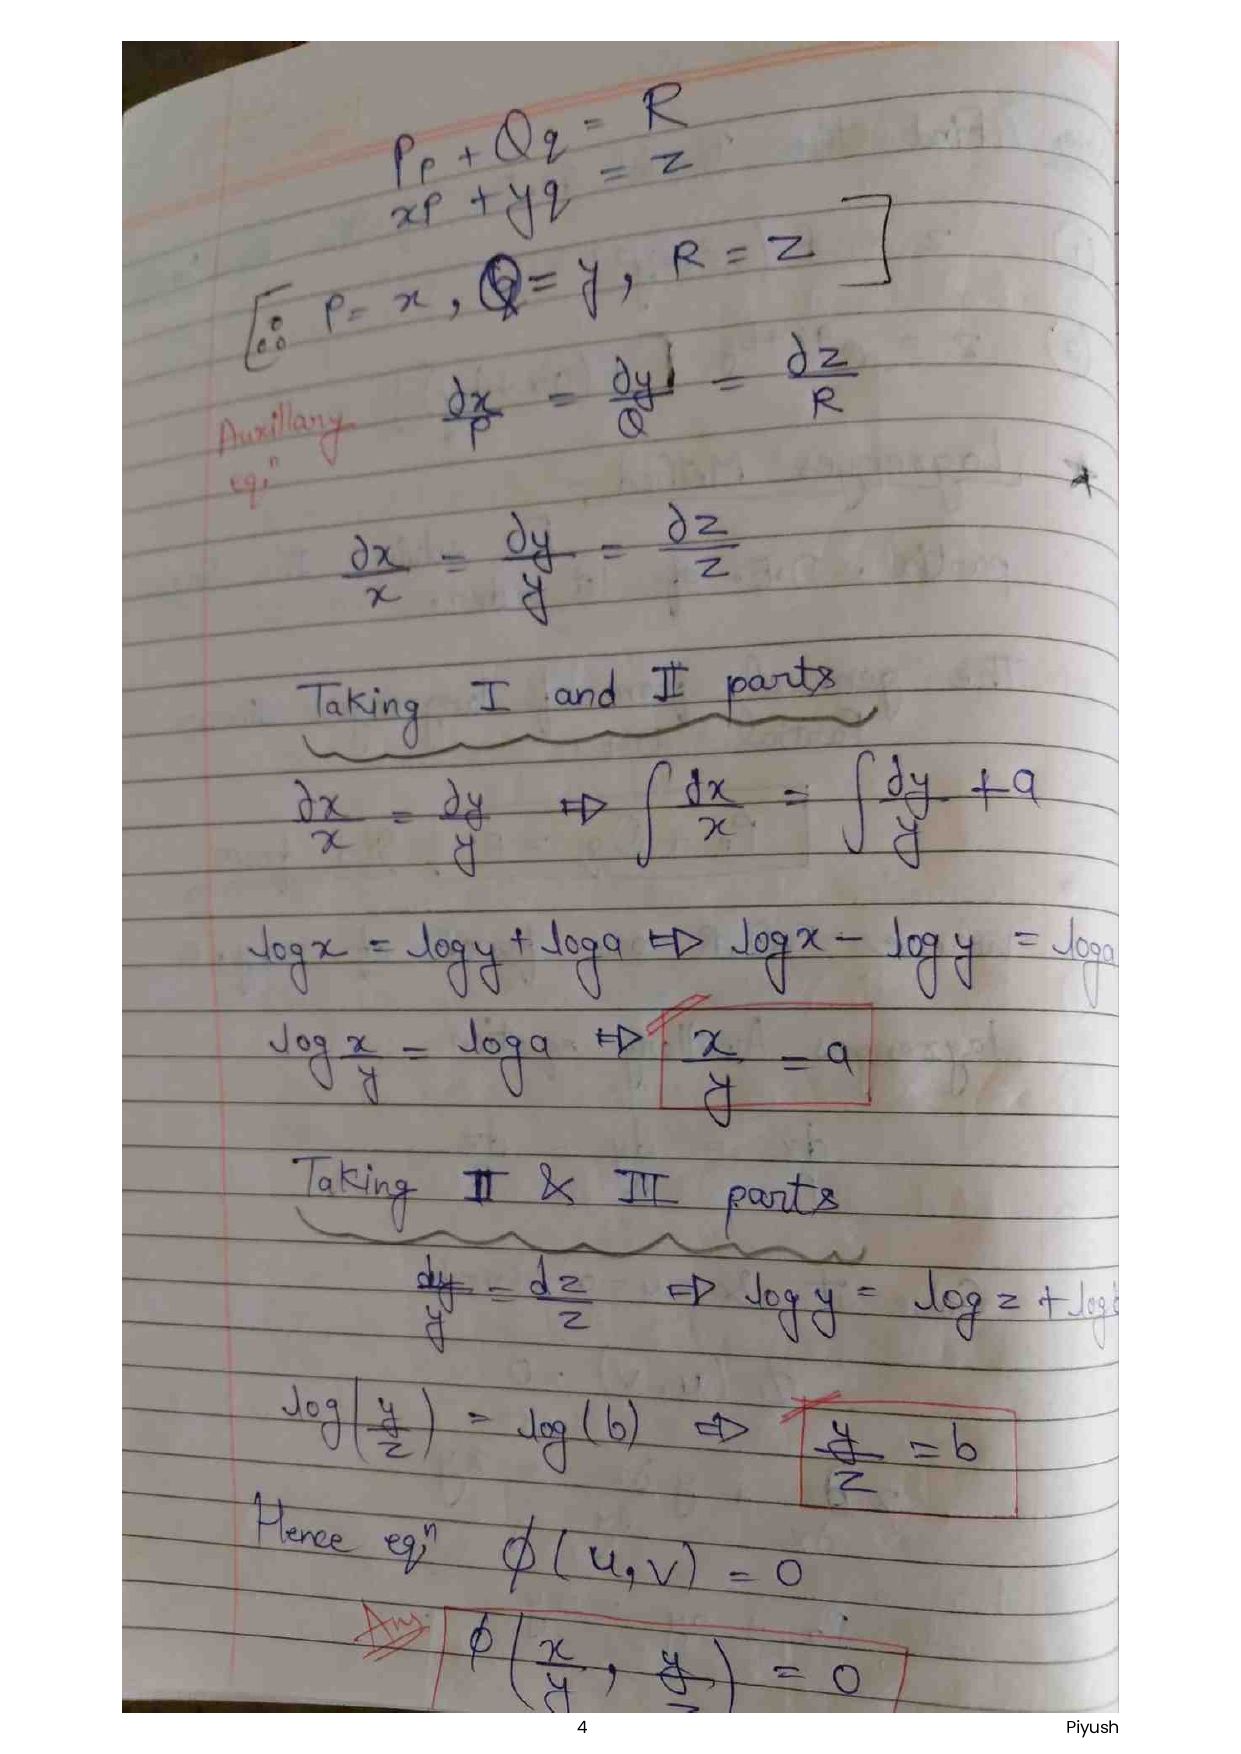 Pp + Qq = R
xp + yq = z
[∴ P = x, Q = y, R = z]
Auxillary eqⁿ ∂x/P = ∂y/Q = ∂z/R
∂x/x = ∂y/y = ∂z/z
Taking I and II parts
∂x/x = ∂y/y ⇒ ∫ dx/x = ∫ dy/y + a
log x = log y + log a ⇒ log x - log y = log a
log x/y = log a ⇒ x/y = a
Taking II & III parts
dy/y = dz/z ⇒ log y = log z + log
log(y/z) = log(b) ⇒ y/z = b
Hence eqⁿ ϕ(u, v) = 0
Ans ϕ(x/y, y/z) = 0
4
Piyush